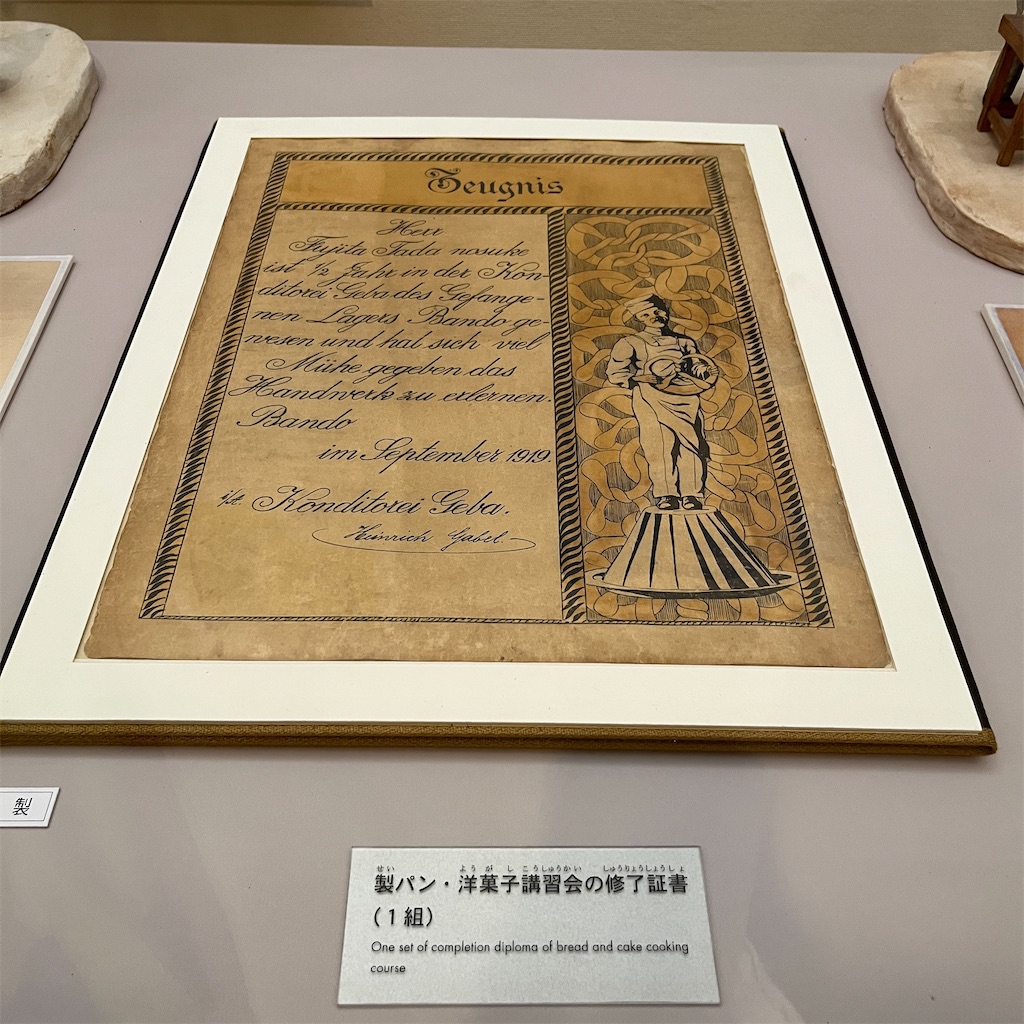 Zeugnis
Herr
Fujita Tada nosuke
ist 1/2 Jahr in der Kon-
ditorei Geba des Gefange-
nen Lagers Bando ge-
wesen und hat sich viel
Mühe gegeben das
Handwerk zu erlernen.
Bando
im September 1919.
Konditorei Geba.
Heinrich Gabel.
製
せい ようがしこうしゅうかい しゅうりょうしょうしょ
製パン・洋菓子講習会の修了証書
(1組)
One set of completion diploma of bread and cake cooking
course